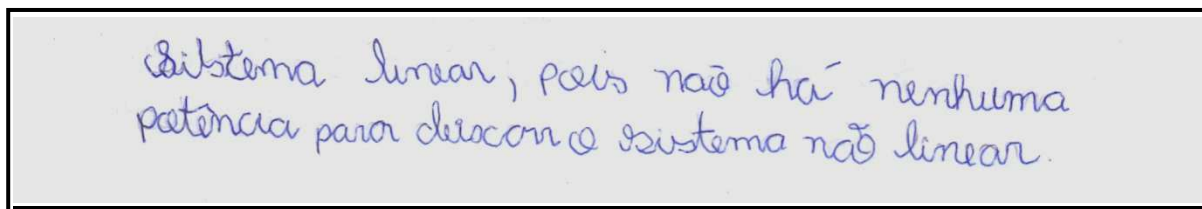 Sistema linear, pois não há nenhuma
potência para deixar o sistema não linear.